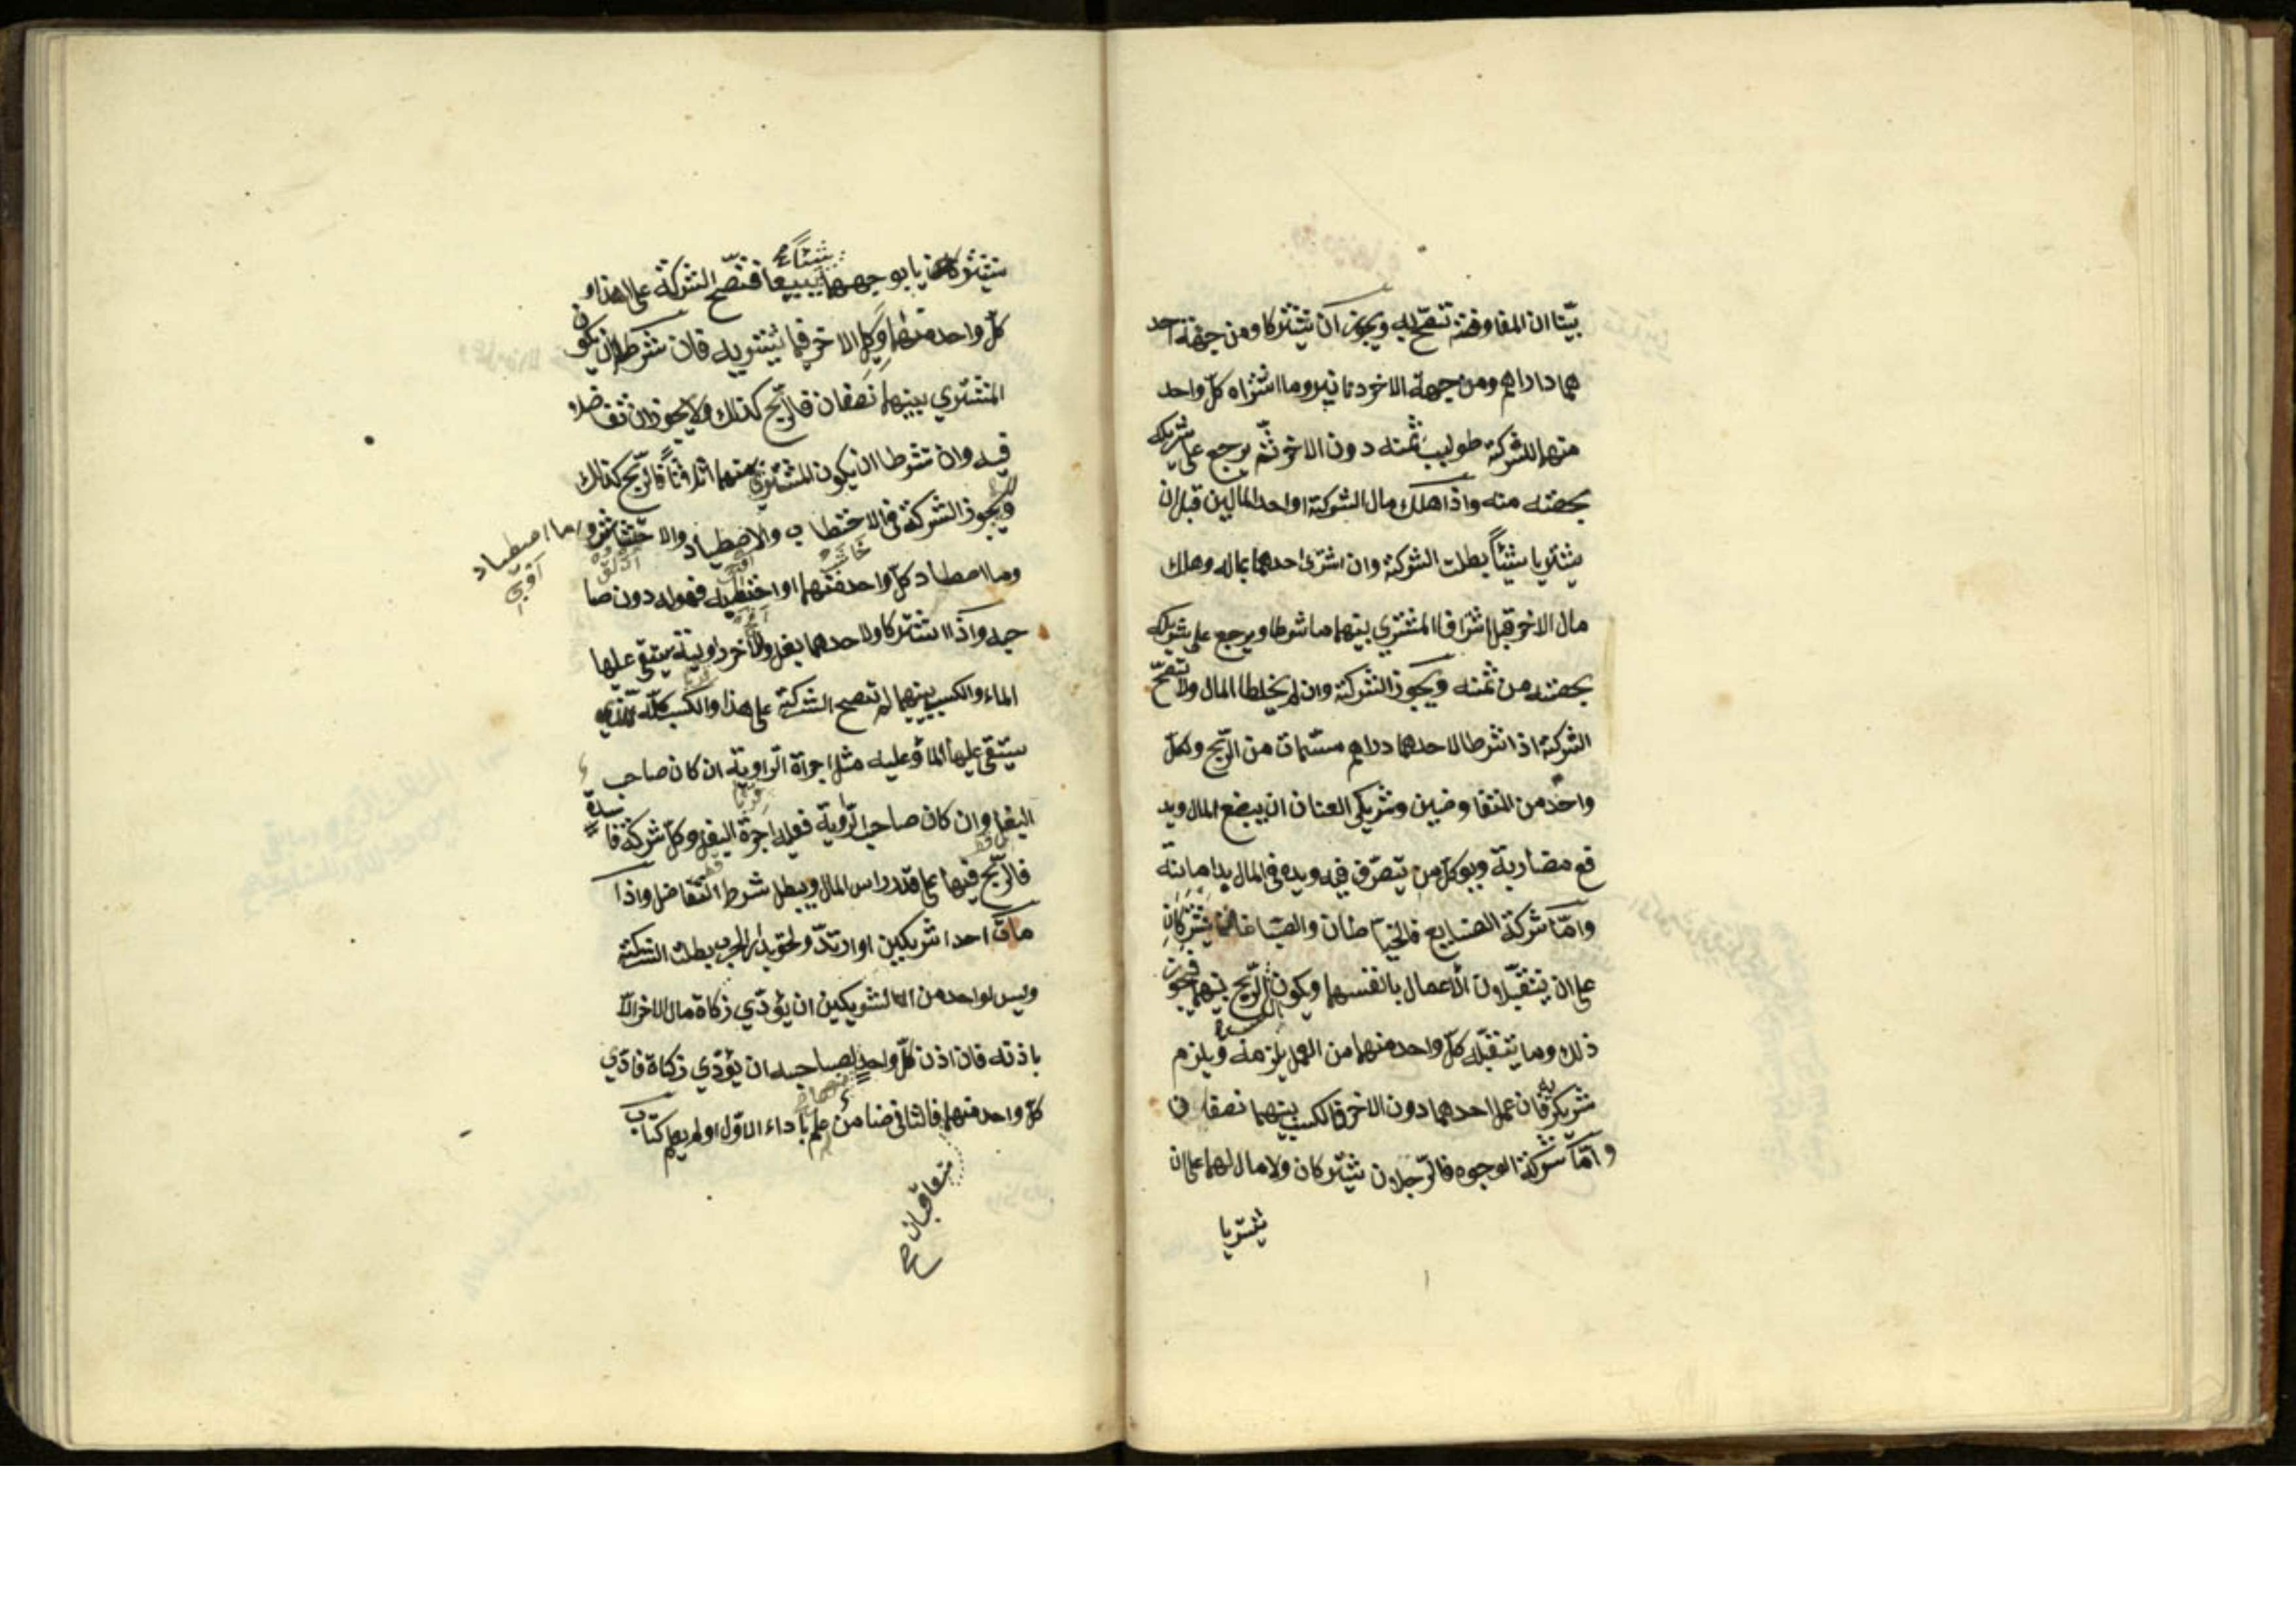 بيّنا ان المفاوضة تصحّ به ويجوز ان يشتركا ومن جهة احد
هما داراهم ومن جهة الاخر دنانير وما اشتراه كلّ واحد
منهما للشركة طولب ثمنه دون الاخر ثمّ يرجع على شريكه
بحصّته منه واذا هلك مال الشركة او احد المالين قبل ان
يشتريا شيئاً بطلت الشركة وان اشترى احدهما بماله وهلك
مال الاخر قبل اشترا فالمشتري بينهما ما شرطا ويرجع على شريكه
بحصّته من ثمنه ويجوز الشركة وان لم يخلطا المال ولا تصحّ
الشركة اذا شرطا لاحدهما دراهم مسّمات من الرّبح ولكلّ
واحد من المتفاوضين وشريكي العنان ان يبضع المال ويد
فع مضاربة ويوكّل من يتصرّف فيه ويده في المال يد امانة
وامّا شركة الصنايع فالخيّاطان والصبّاغان يشتركان
على ان يتقبّلان الأعمال بانفسهما ويكون الرّبح بينهما فيجوز
ذلك وما يتقبّله كلّ واحد منهما من العمل يلزمه ويلزم
شريكه فان عمل احدهما دون الاخر فالكسب بينهما نصفان
وامّا شركة الوجوه فالرّجلان يشتركان ولا مال لهما على ان
يشتريا
يشتركان يا بوجههما يبيعا فتصّح الشركة على هذا و
شيئاً صح
كلّ واحد منهما وكيل الاخر فيما يشتريه فان شرطا ان يكون
المشتري بينهما نصفان فالرّبح كذلك ولا يجوز ان تفاضلا
فيه وان شرطا ان يكون المشتري بينهما اثلاثاً فالرّبح كذلك
ويجوز الشركة في الاختطاب والاصطياد والاحتشاش وما اصطياد
وما اصطاد كلّ واحد منهما او اختطبه فهو له دون صا
حبه واذا اشتركا ولاحدهما بغل وللأخر راوية يستقي عليها
الماء والكسب بينهما لم تصح الشركة على هذا والكسب كلّه للذي
يستقي عليها الماء وعليه مثل اجراة الرّاوية ان كان صاحب
البغل وان كان صاحب الرّاوية فعليه اجرة البغل وكلّ شركة فاسدة
فالرّبح فيها على قدر راس المال ويبطل شرط التفاضل واذا
مات احد اشريكين او ارتدّ ولحق بدار الحرب بطلت الشركة
وليس لواحد من الشريكين ان يؤدّي زكاة مال الاخر الّا
باذنه فان اذن كلّ واحد لصاحبه ان يؤدّي زكاة فادّي
كلّ واحد منهما فالثاني ضامن علم باداء الاوّل او لم يعلم كتاب
متعاقبان صح